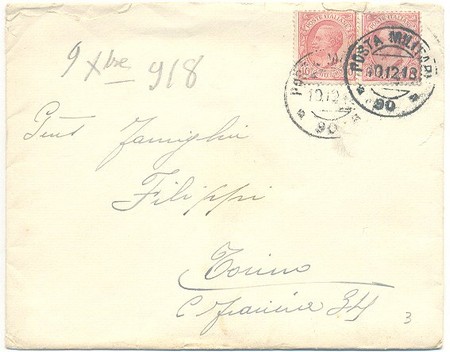 POSTE ITALIANE POSTE ITALIANE
POSTA MILITARE
10.12.18 10.12.18
90 90
9 Xbre 918
Gent Famiglia
Filippi
Torino
C Francia 34
3